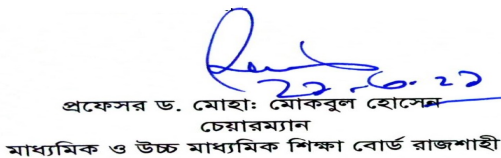 ২২.৬.২১
প্রফেসর ড. মোহাঃ মোকবুল হোসেন
চেয়ারম্যান
মাধ্যমিক ও উচ্চ মাধ্যমিক শিক্ষা বোর্ড রাজশাহী